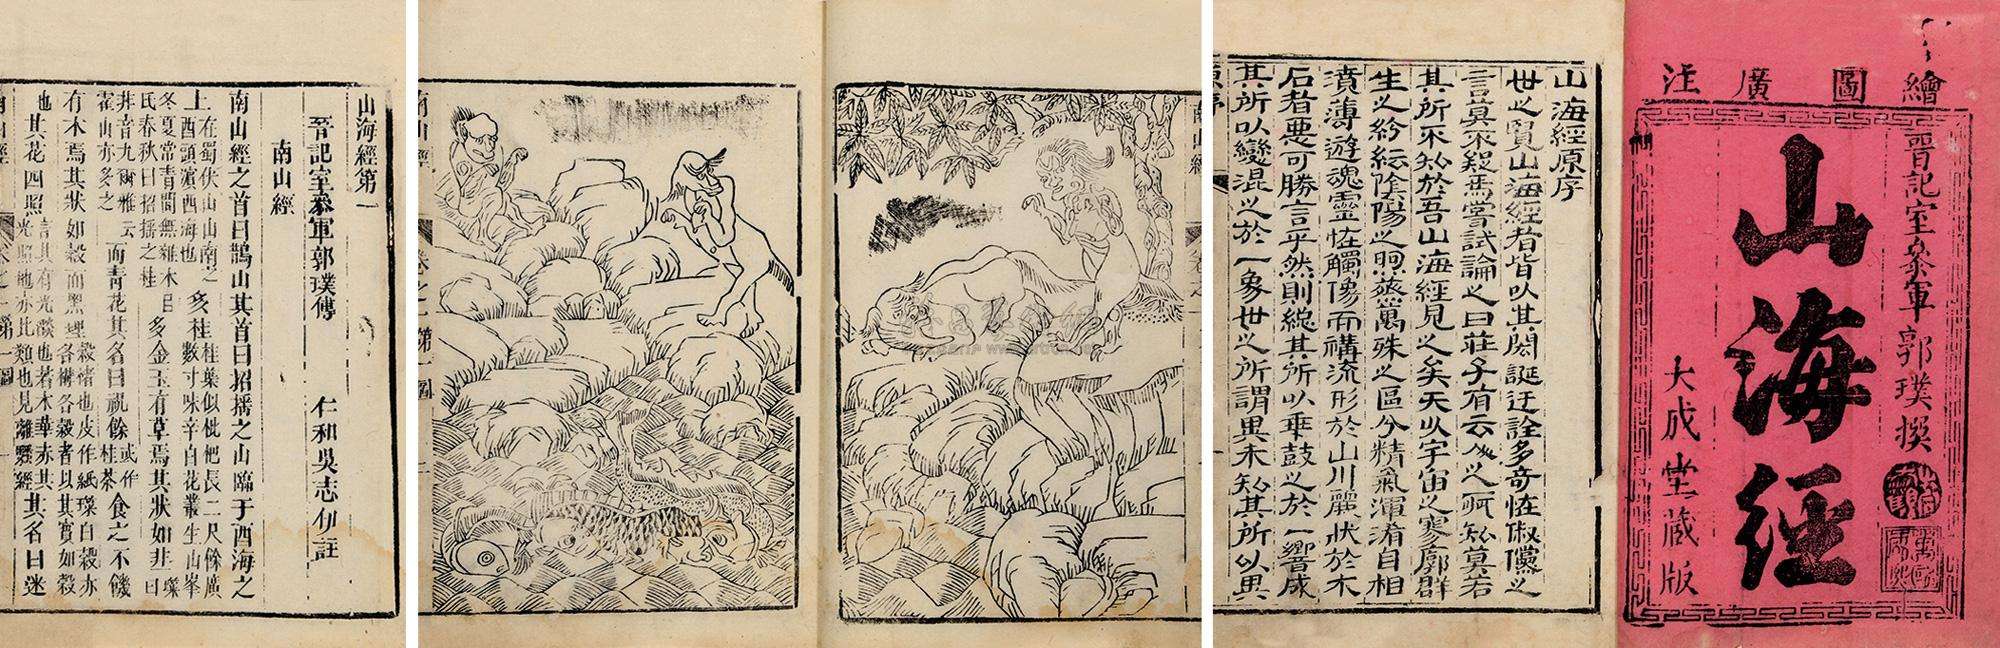 繪圖廣注
晋記室叅軍郭璞撰
山海經
大成堂藏版
山海經原序
世之覽山海經者皆以其閎誕迂誇多奇怪俶儻之
言莫不疑焉嘗試論之曰莊子有云人之所知莫若
其所不知於吾山海經見之矣夫以宇宙之寥廓群
生之紛紜陰陽之煦蒸萬殊之區分精氣渾淆自相
濆薄遊魂靈怪觸像而構流形於山川麗狀於木
石者惡可勝言乎然則總其所以乖鼓之於一響成
其所以變混之於一象世之所謂異未知其所以異
原序
南山經 卷之一
南山經 卷之一 第一圖
山海經第一
晉記室叅軍郭璞傳 仁和吳志伊註
南山經
南山經之首曰鵲山其首曰招搖之山臨于西海之
上在蜀伏山山南之西頭濵西海也多桂桂葉似枇杷長二尺餘廣數寸味辛白花叢生山峯
冬夏常青間無雜木呂氏春秋曰招搖之桂多金玉有草焉其狀如韭璨曰
韭音九爾雅云霍山亦多之而青花其名曰祝餘或作桂荼食之不饑
有木焉其狀如穀而黑理穀楮也皮作紙璨曰穀亦名構名穀者以其實如穀
也其花四照言其有光燄也若木華赤其光照地亦此類也見離騷經其名曰迷
南山經 卷之一 第一圖